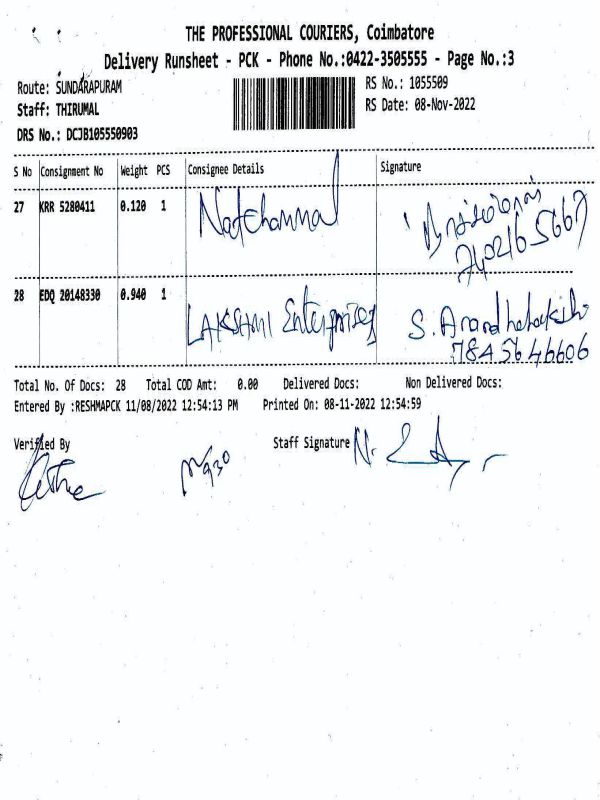 THE PROFESSIONAL COURIERS, Coimbatore
Delivery Runsheet - PCK - Phone No.:0422-3505555 - Page No.:3
Route: SUNDARAPURAM RS No.: 1055509
Staff: THIRUMAL RS Date: 08-Nov-2022
DRS No.: DCJB105550903
S No Consignment No Weight PCS Consignee Details Signature
27 KRR 5280411 0.120 1 Natchammal
28 EDQ 20148330 0.940 1 LAKSHMI Enterprises S.
7845646606
Total No. Of Docs: 28 Total COD Amt: 0.00 Delivered Docs: Non Delivered Docs:
Entered By :RESHMAPCK 11/08/2022 12:54:13 PM Printed On: 08-11-2022 12:54:59
Verified By Staff Signature